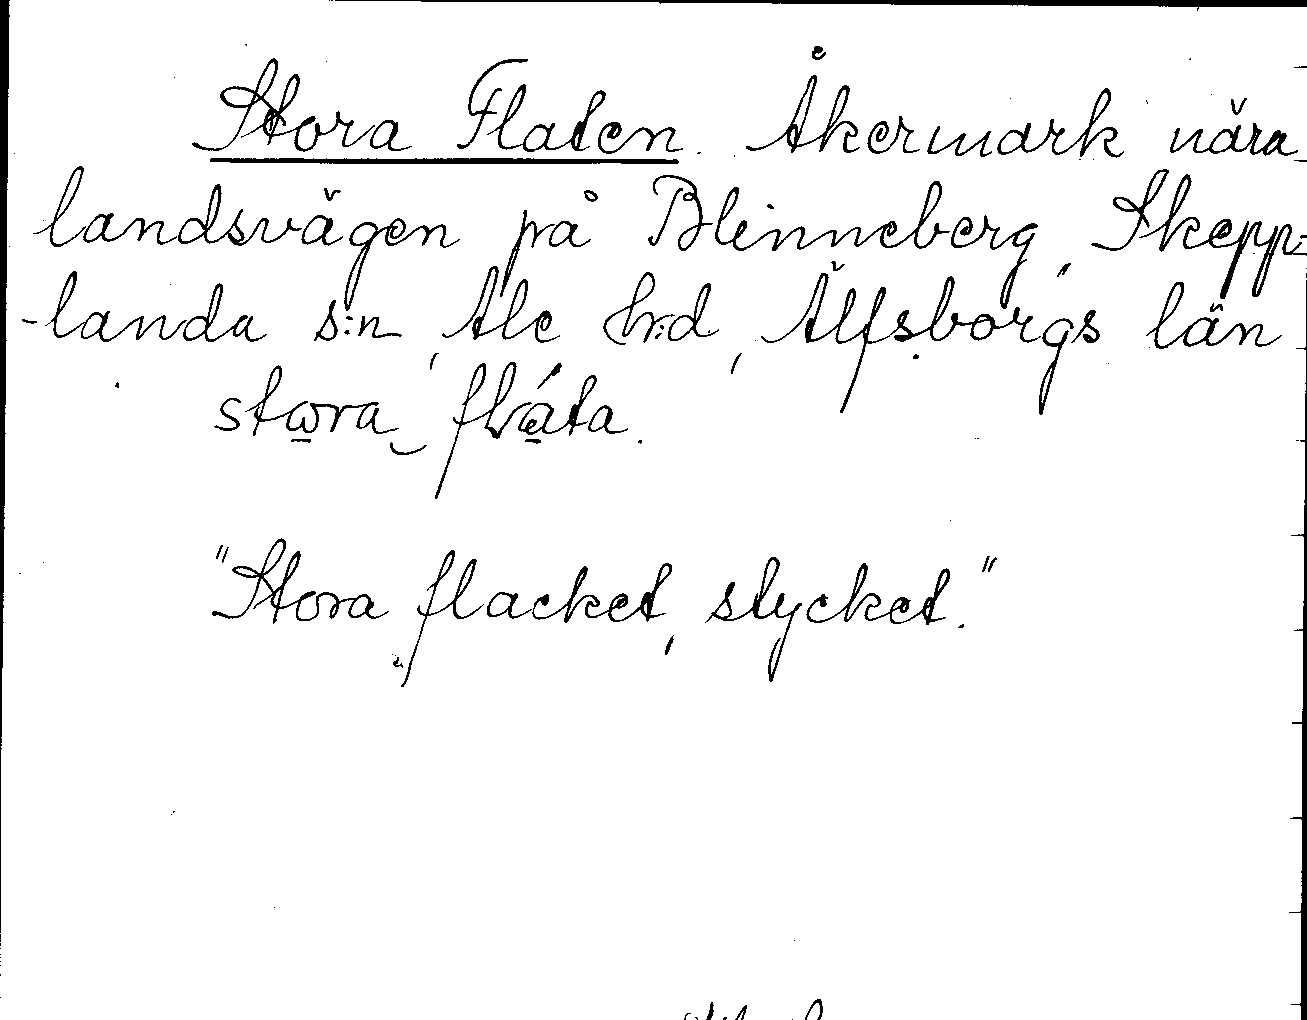 Stora Flaten. Åkermark nära
landsvägen på Blinneberg, Skepp-
-landa s:n, Ale hr:d, Älfsborgs län
stωra‿ flata.
"Stora flacket, stycket."